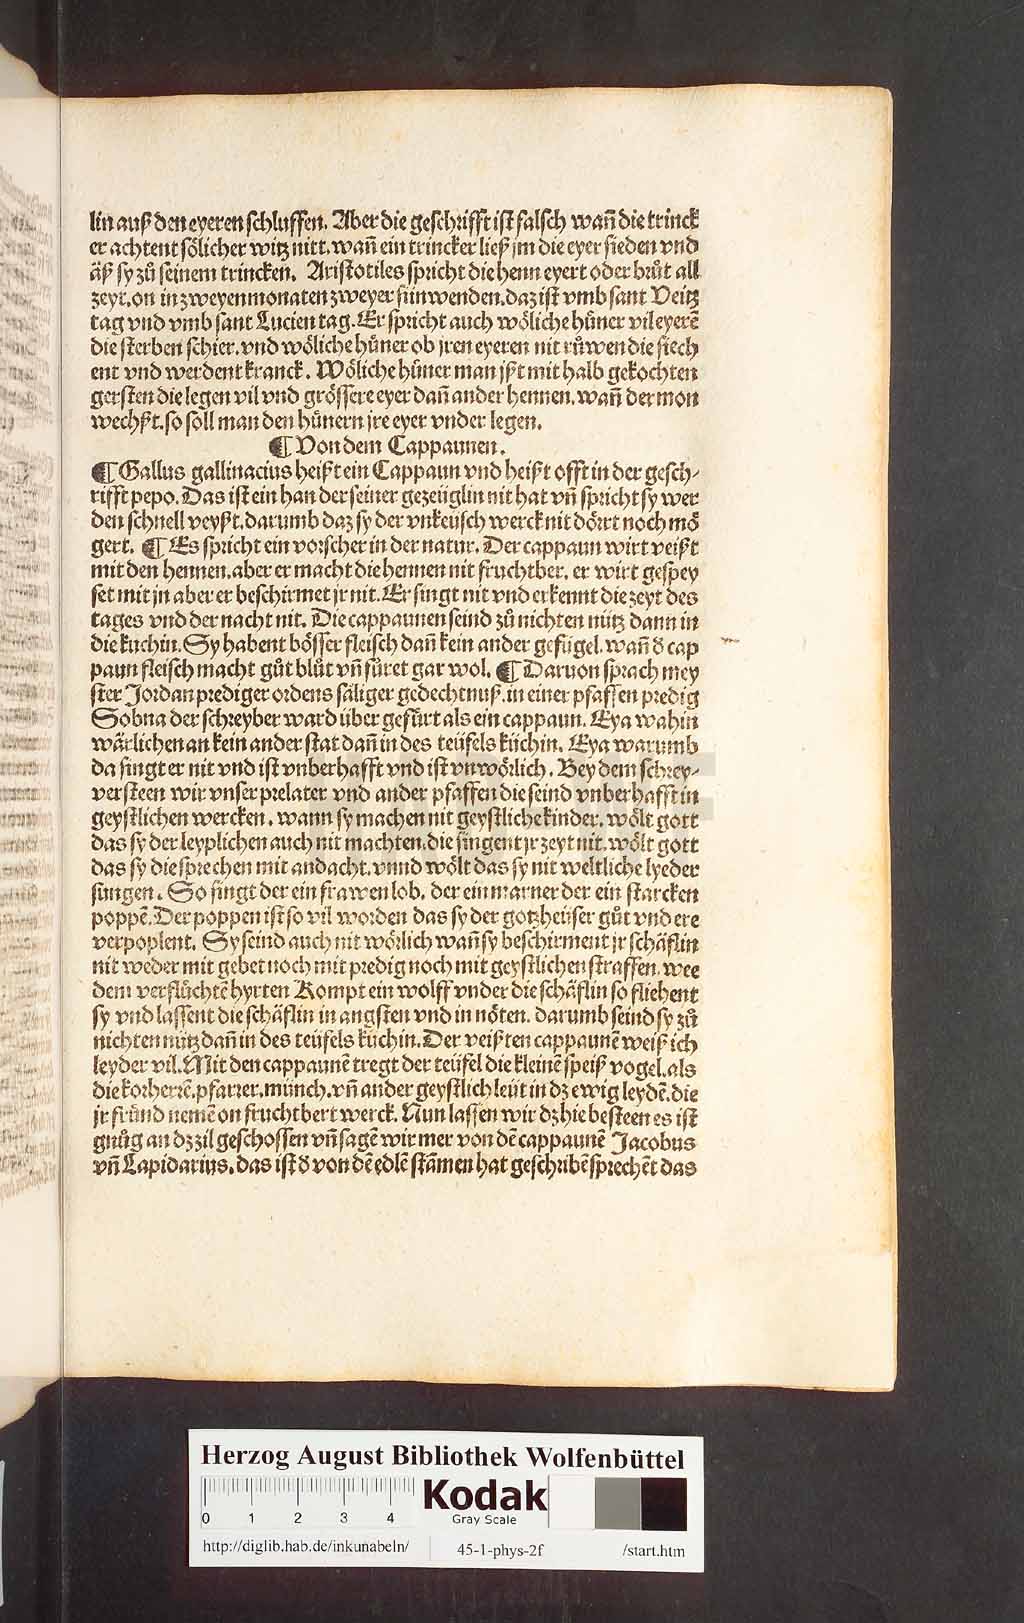 lin auß den eyeren schluffen. Aber die geschrifft ist falsch wañ die trinck
er achtent sölicher witz nitt. wañ ein trincker ließ jm die eyer sieden vnd
äß sy zů seinem trincken. Aristotiles spricht die henn eyert oder brůt all
zeyt. on in zweyen monaten zweyer sunwenden. daz ist vmb sant Veitz
tag vnd vmb sant Lucien tag. Er spricht auch wöliche hůner vil eyerē
die sterben schier. vnd wöliche hůner ob jren eyeren nit růwen die siech
ent vnd werdent kranck. Wöliche hůner man jßt mit halb gekochten
gersten die legen vil vnd grössere eyer dañ ander hennen. wañ der mon
wechßt. so soll man den hůnern jre eyer vnder legen.
¶ Von dem Cappaunen.
¶ Gallus gallinacius heißt ein Cappaun vnd heißt offt in der gesch-
rifft pepo. Das ist ein han der seiner gezeüglin nit hat vñ spricht sy wer
den schnell veyßt. darumb daz sy der vnkeüsch werck nit dörrt noch mö
gert. ¶ Es spricht ein vorscher in der natur. Der cappaun wirt veißt
mit den hennen. aber er macht die hennen nit fruchtber. er wirt gespey
set mit jn aber er beschirmet jr nit. Er singt nit vnd erkennt die zeyt des
tages vnd der nacht nit. Die cappaunen seind zů nichten nütz dann in
die kuchin. Sy habent bösser fleisch dañ kein ander gefügel. wañ d̓ cap
paun fleisch macht gůt blůt vñ füret gar wol. ¶ Daruon sprach mey
ster Jordan prediger ordens säliger gedechtnuß. in einer pfaffen predig
Sobna der schreyber ward über gefürt als ein cappaun. Eya wahin
wärlichen an kein ander stat dañ in des teüfels küchin. Eya warumb
da singt er nit vnd ist vnberhafft vnd ist vnwörlich. Bey dem schrey-
versteen wir vnser prelater vnd ander pfaffen die seind vnberhafft in
geystlichen wercken. wann sy machen nit geystliche kinder. wölt gott
das sy der leyplichen auch nit machten. die singent jr zeyt nit. wölt gott
das sy die sprechen mit andacht. vnnd wölt das sy nit weltliche lyeder
sungen. So singt der ein frawen lob. der ein marner der ein starcken
poppē. Der poppen ist so vil worden das sy der gotzheüser gůt vnd ere
verpoplent. Sy seind auch nit wörlich wañ sy beschirment jr schäflin
nit weder mit gebet noch mit predig noch mit geystlichen straffen. wee
dem verflůchtē hyrten Kompt ein wolff vnder die schäflin so fliehent
sy vnd lassent die schäflin in angsten vnd in nöten. darumb seind sy zů
nichten nütz dañ in des teüfels küchin. Der veißten cappaunē weiß ich
leyder vil. Mit den cappaunē tregt der teüfel die kleinē speiß vogel. als
die korherrē. pfarrer. münch. vñ ander geystlich leüt in dz ewig leydē. die
jr fründ nemē on fruchtbert werck. Nun lassen wir dz hie besteen es ist
gnůg an dz zil geschossen vñ sagē wir mer von dē cappaunē Jacobus
vñ Lapidarius. das ist d̓ von dē edlē stämen hat geschribē sprechēt das
Herzog August Bibliothek Wolfenbüttel
0 1 2 3 4
Kodak
Gray Scale
http://diglib.hab.de/inkunabeln/ 45-1-phys-2f /start.htm